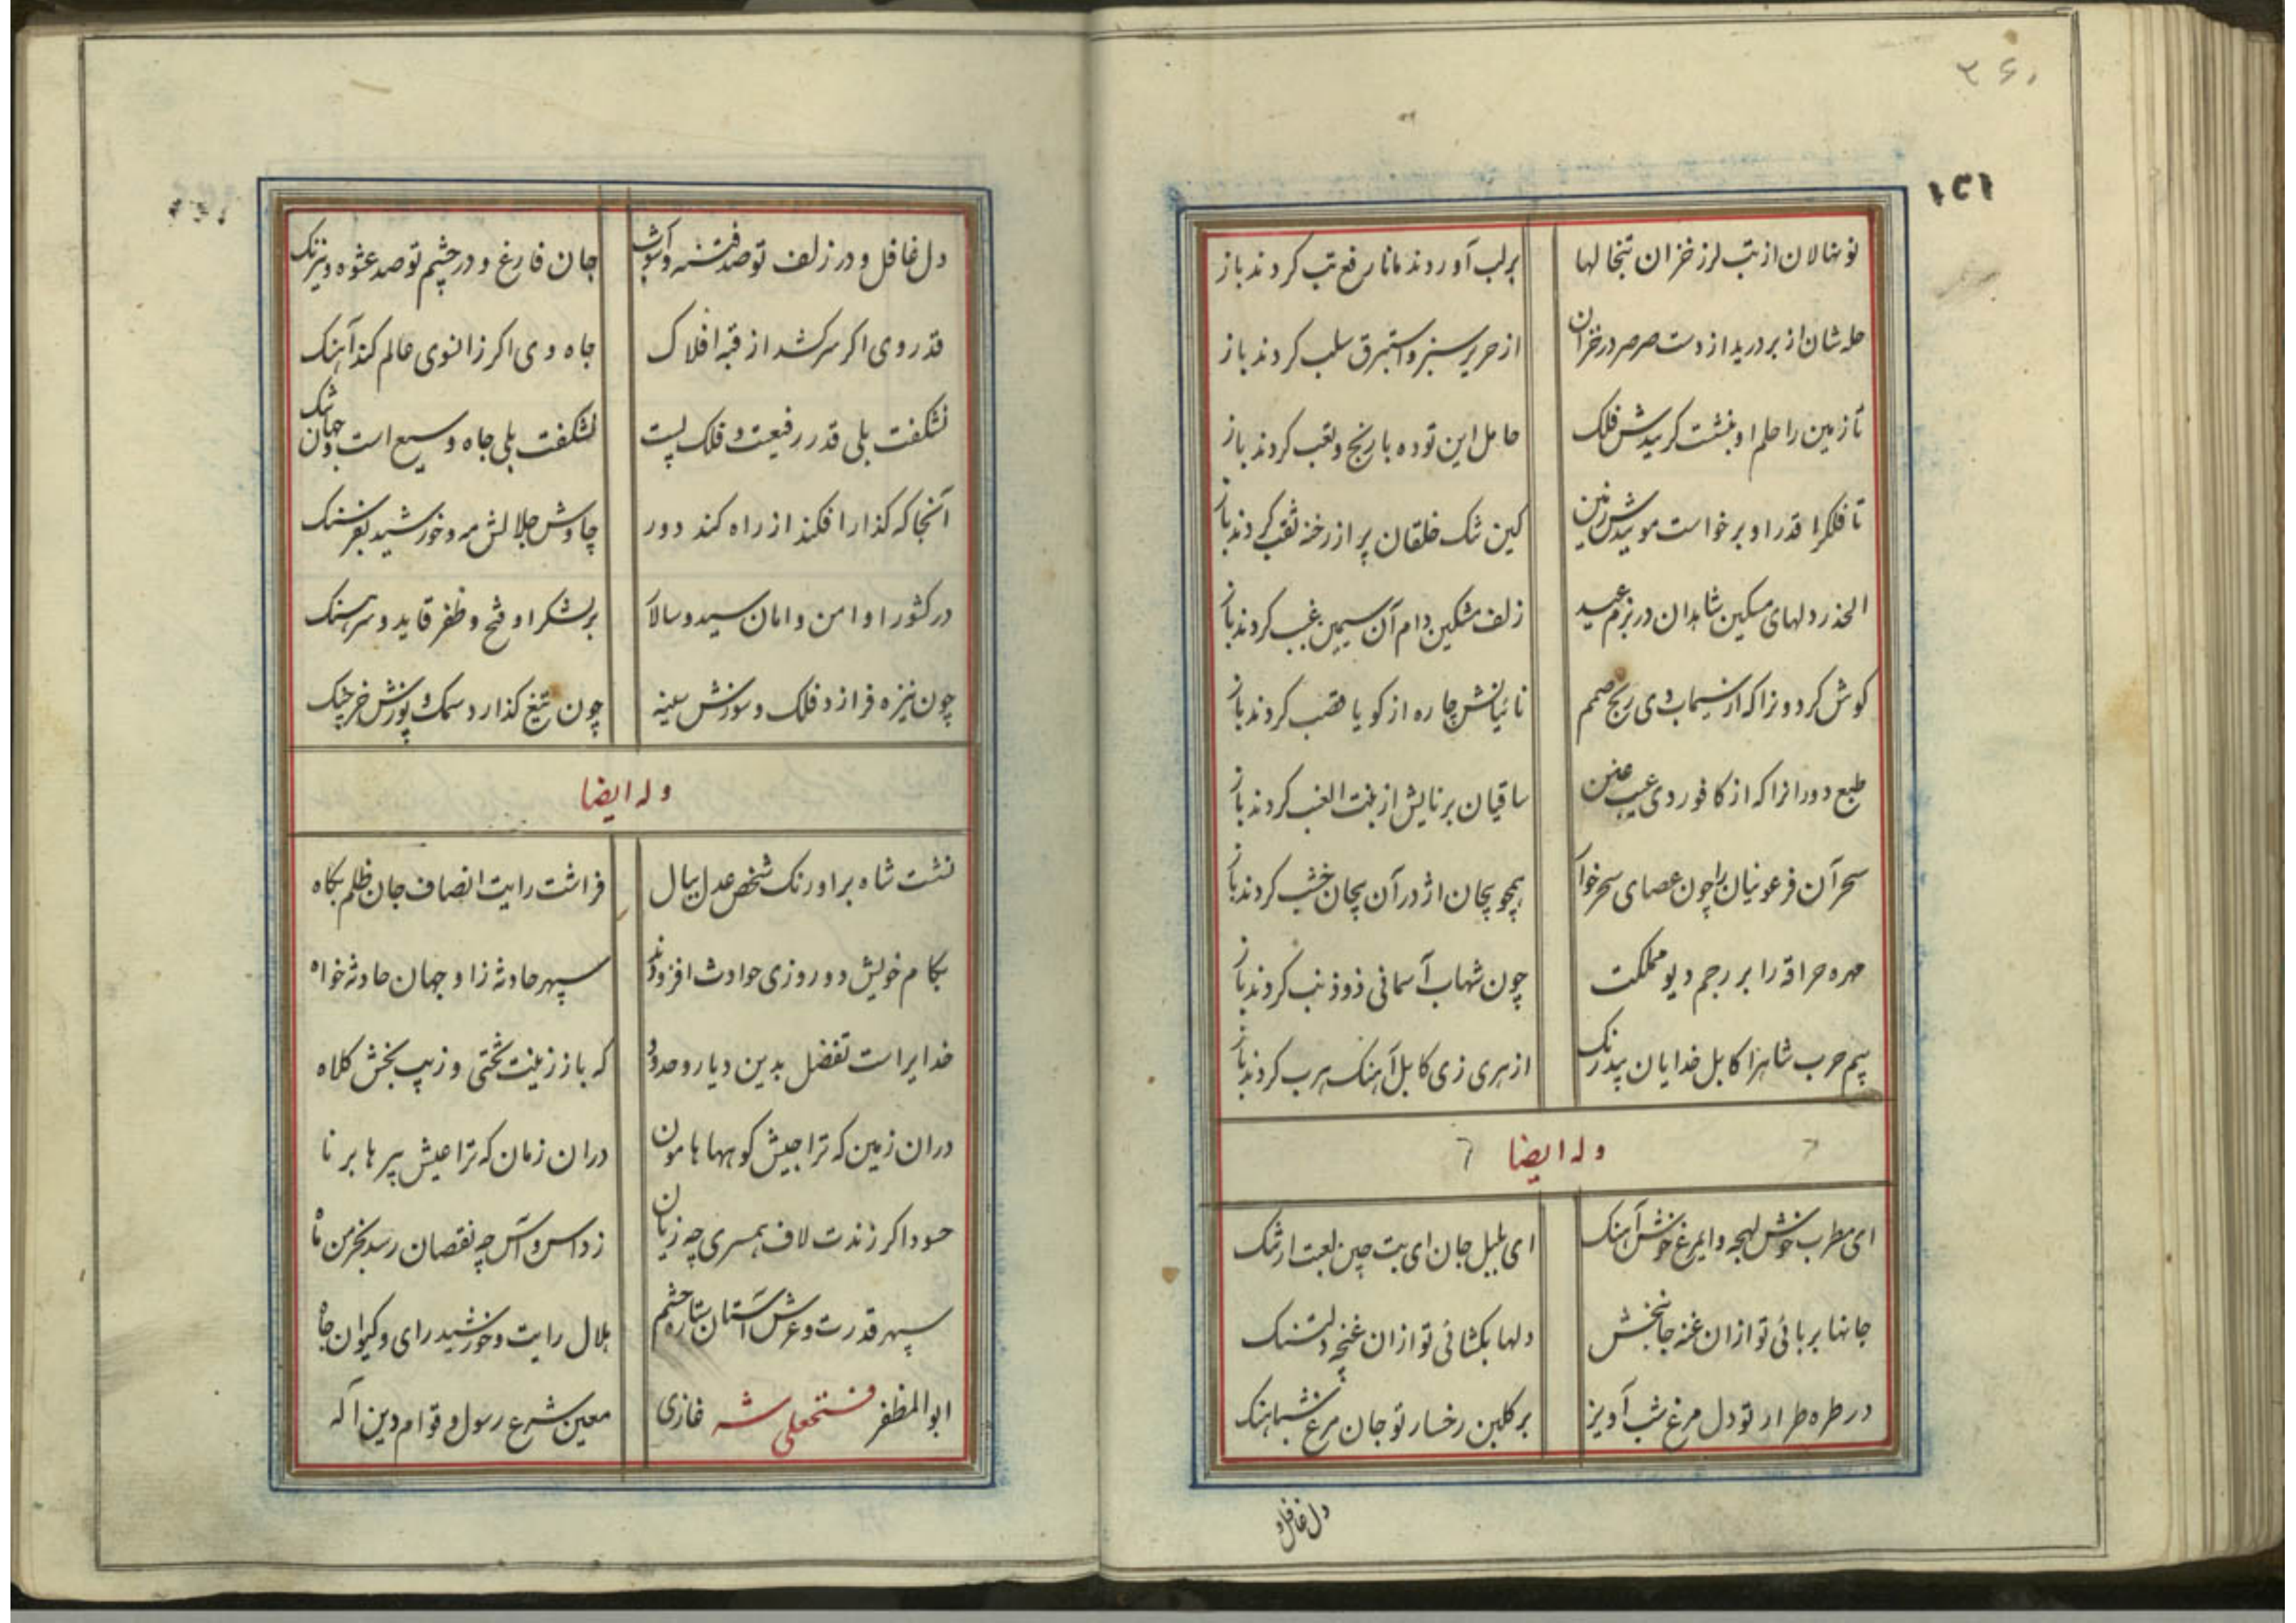 ۳۶۰
۱۵۱
نونهالان از تب لرز خزان تبخالها برلب آوردند مانا رفع تب کردند باز
حله شان از بر درید از دست صرصر در خزان از حریر سبز و استبرق سلب کردند باز
تا زمین را حلم او بنشست کریدش فلک حامل این توده با رنج و تعب کردند باز
تا فلکرا قدر او برخواست موییدش زمین کین تنک خلقان پر از رخنه ثقب کردند باز
الحذر دلهای مسکین شاهدان در بزم عید زلف مشکین دام آن سیمین غبب کردند باز
کوش کردونرا که از سیماب وی رنج صمم نائیانش چاره از کویا قصب کردند باز
طبع دورانرا که از کافور دی عیب عنن ساقیان برنایش از بنت العنب کردند باز
سحر آن فرعونیان را چون عصای سحرخوار همچو پیچان اژدر آن پیچان خشب کردند باز
مهره حراقه را بر رجم دیو مملکت چون شهاب آسمانی ذوذنب کردند باز
بیم حرب شاهرا کابل خدایان بیدرنک از هری زی کابل آهنک هرب کردند باز
وله ایضا
ای مطرب خوش لهجه و ایمرغ خوش آهنک ای بلبل جان ای بت چین لعبت ارتنک
جانها بربائی تو ازان غنه جانبخش دلها بکشائی تو ازان غنچه دلتنک
در طره طرار تو دل مرغ شب آویز بر کلبن رخسار تو جان مرغ شباهنک
دل غافل و
دل غافل و در زلف تو صد فتنه و آشوب جان فارغ و در چشم تو صد عشوه و نیرنک
قدر وی اکر سرکشد از قبه افلاک جاه وی اکر زانسوی عالم کند آهنک
نشکفت بلی قدر رفیعست و فلک پست نشکفت بلی جاه وسیع است و جهان تنک
آنجا که کذار افکند از راه کند دور چاوش جلالش مه و خورشید بفرسنک
در کشور او امن و امان سید و سالار بر لشکر او فتح و ظفر قاید و سرهنک
چون نیزه فرازد فلک و سوزش سینه چون تیغ کذارد سمک و پوزش خرچنک
وله ایضا
نشست شاه براورنک شخص عدل ببال فراشت رایت انصاف جان ظلم بکاه
بکام خویش دو روزی حوادث افزودند سپهر حادثه زا و جهان حادثه خواه
خدایراست تفضل بدین دیار و حدود که باز زینت تختی و زیب بخش کلاه
دران زمین که ترا جیش کوهها هامون دران زمان که ترا عیش پیرها برنا
حسود اکر زندت لاف همسری چه زیان ز داس و آس چه نقصان رسد بخرمن ماه
سپهر قدرت و عرش آستان ستاره حشم هلال رایت و خورشید رای و کیوان جاه
ابوالمظفر فتحعلی شه غازی معین شرع رسول و قوام دین آله